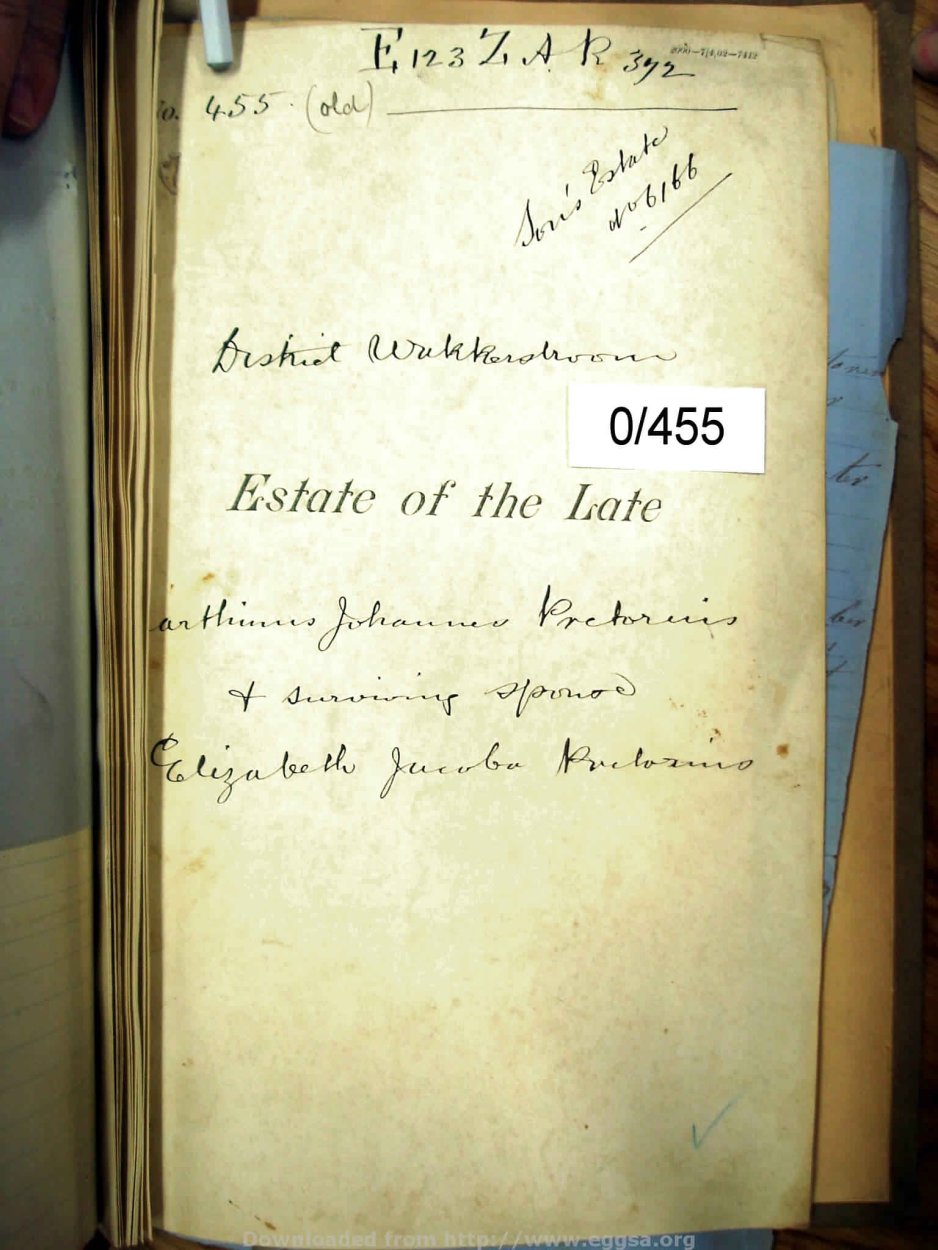 E 123 Z A R 392
2000—7/4/02—7412
o. 455. (old)
Son's Estate
No 6166
District Wakkerstroom
0/455
Estate of the Late
arthinus Johannes Pretorius
& surviving spouse
Elizabeth Jacoba Pretorius
ter
Downloaded from http://www.eggsa.org